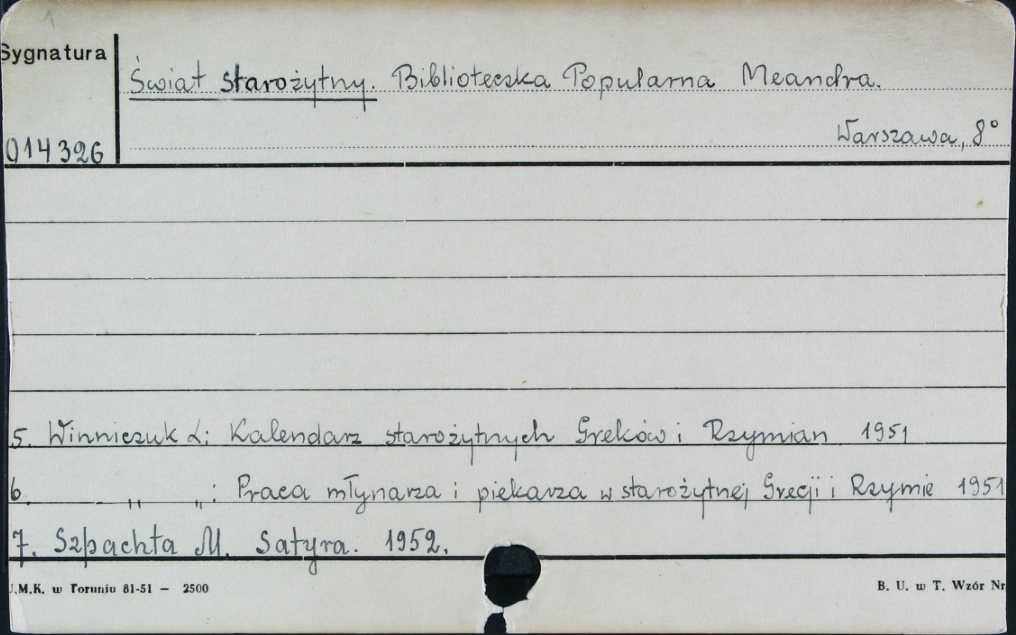 1
Sygnatura
Świat starożytny. Biblioteczka Popularna Meandra.
Warszawa, 8°
014326
5. Winniczuk L: Kalendarz starożytnych Greków i Rzymian 1951
6. „ „: Praca młynarza i piekarza w starożytnej Grecji i Rzymie 1951
7. Szpachta M. Satyra. 1952.
U.M.K. w Toruniu 81-51 — 2500
B. U. w T. Wzór Nr